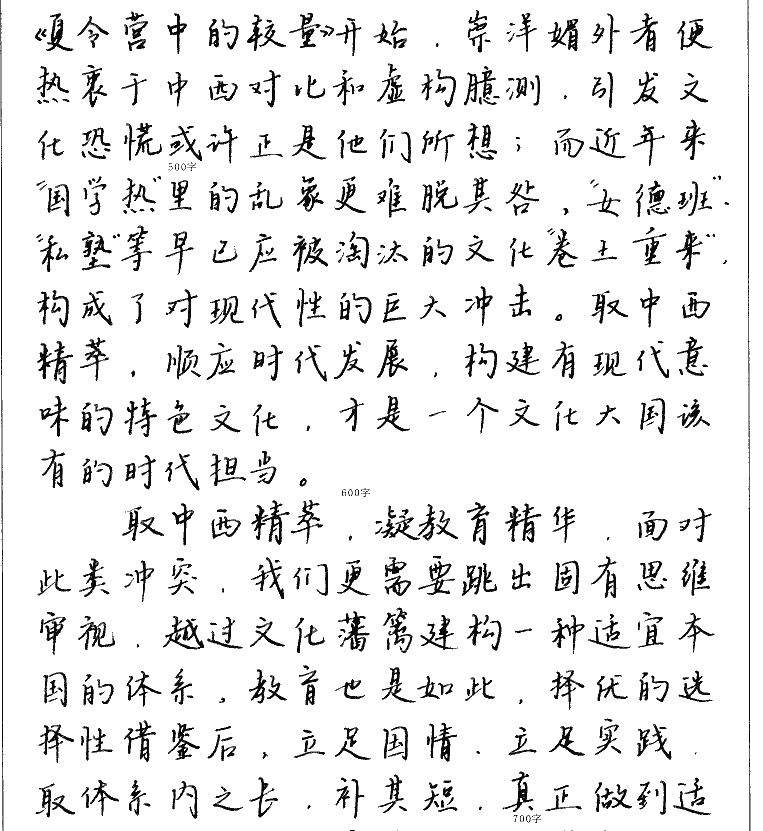 《夏令营中的较量》开始，崇洋媚外者便
热衷于中西对比和虚构臆测，引发文
化恐慌或许正是他们所想；而近年来
500字
“国学热”里的乱象更难脱其咎，“女德班”、
“私塾”等早已应被淘汰的文化“卷土重来”，
构成了对现代性的巨大冲击。取中西
精萃，顺应时代发展，构建有现代意
味的特色文化，才是一个文化大国该
有的时代担当。
600字
取中西精萃，凝教育精华，面对
此类冲突，我们更需要跳出固有思维
审视，越过文化藩篱建构一种适宜本
国的体系，教育也是如此，择优的选
择性借鉴后，立足国情、立足实践，
取体系内之长，补其短，真正做到适
700字